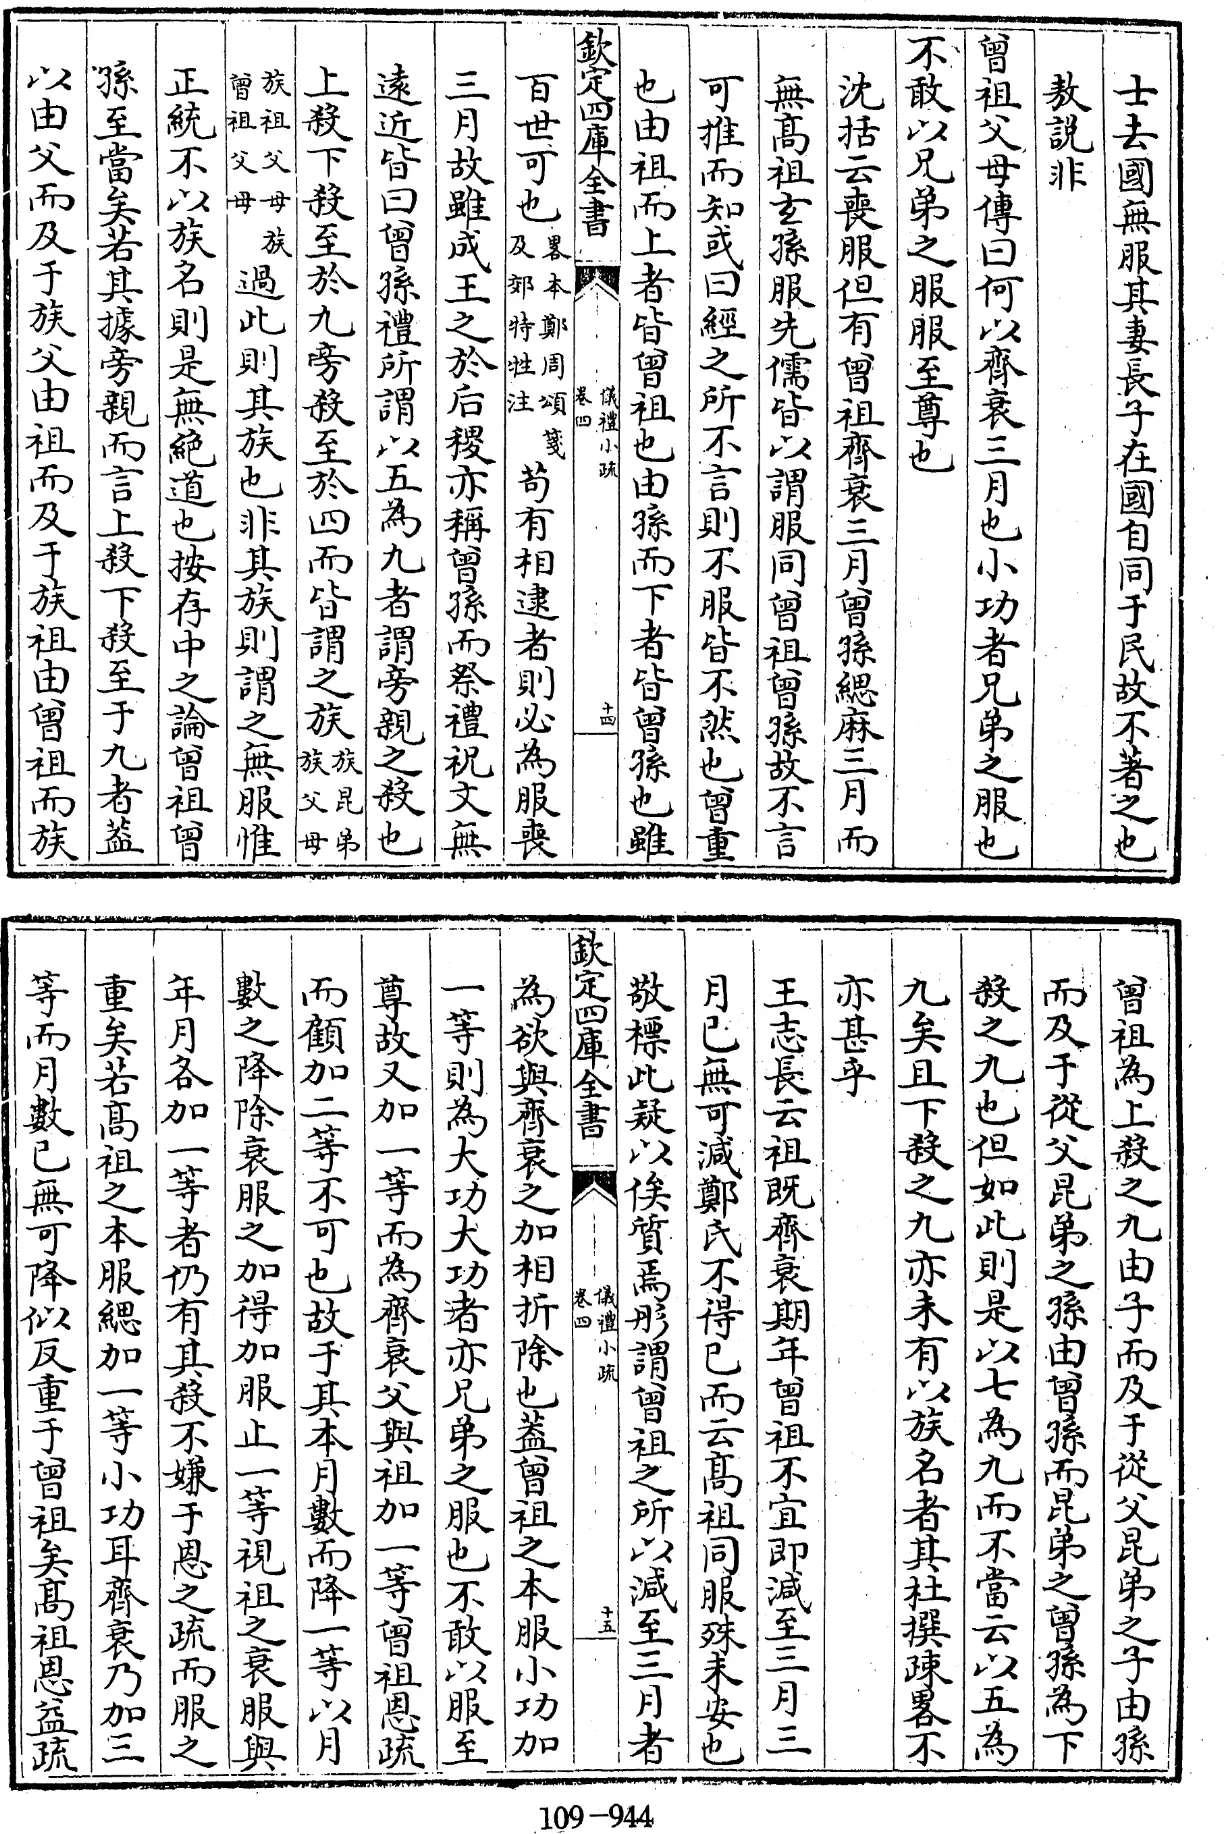 士去國無服其妻長子在國自同于民故不著之也
敖説非
曾祖父母傳曰何以齊衰三月也小功者兄弟之服也
不敢以兄弟之服服至尊也
沈括云喪服但有曾祖齊衰三月曾孫緦麻三月而
無髙祖玄孫服先儒皆以謂服同曾祖曾孫故不言
可推而知或曰經之所不言則不服皆不然也曾重
也由祖而上者皆曾祖也由孫而下者皆曾孫也雖
欽定四庫全書
儀禮小疏
卷四
十四
百世可也畧本鄭周頌箋及郊特牲注苟有相逮者則必為服喪
三月故雖成王之於后稷亦稱曾孫而祭禮祝文無
逺近皆曰曾孫禮所謂以五為九者謂旁親之殺也
上殺下殺至於九旁殺至於四而皆謂之族族昆弟族父母
族祖父母族曾祖父母過此則其族也非其族則謂之無服惟
正統不以族名則是無絶道也按存中之論曾祖曾
孫至當矣若其據旁親而言上殺下殺至于九者葢
以由父而及于族父由祖而及于族祖由曾祖而族
曾祖為上殺之九由子而及于從父昆弟之子由孫
而及于從父昆弟之孫由曾孫而昆弟之曾孫為下
殺之九也但如此則是以七為九而不當云以五為
九矣且下殺之九亦未有以族名者其杜撰疎畧不
亦甚乎
王志長云祖既齊衰期年曾祖不宜即減至三月三
月已無可減鄭氏不得已而云髙祖同服殊未安也
敬標此疑以俟質焉彤謂曾祖之所以減至三月者
欽定四庫全書
儀禮小疏
卷四
十五
為欲與齊衰之加相折除也葢曾祖之本服小功加
一等則為大功大功者亦兄弟之服也不敢以服至
尊故又加一等而為齊衰父與祖加一等曾祖恩疏
而顧加二等不可也故于其本月數而降一等以月
數之降除衰服之加得加服止一等視祖之衰服與
年月各加一等者仍有其殺不嫌于恩之疏而服之
重矣若髙祖之本服緦加一等小功耳齊衰乃加三
等而月數已無可降似反重于曾祖矣髙祖恩益疏
109-944